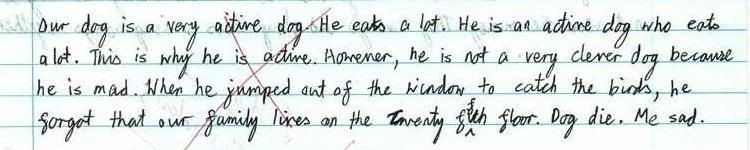 Our dog is a very active dog. He eats a lot. He is an active dog who eats
a lot. This is why he is active. However, he is not a very clever dog because
he is mad. When he jumped out of the window to catch the birds, he
forgot that our family lives on the Twenty fifth floor. Dog die. Me sad.